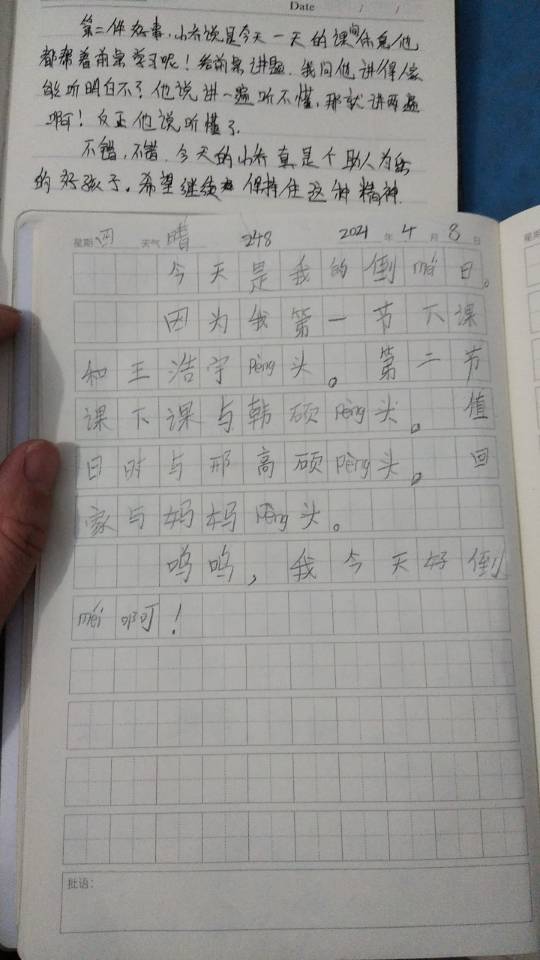 Date / /
第二件好事,小乔说是今天一天的课间休息他
都帮着前桌学习呢!给前桌讲题.我问他讲得人家
能听明白不?他说讲一遍听不懂,那就讲两遍
啊!反正他说听懂了.
不错,不错.今天的小乔真是个助人为乐
的好孩子。希望继续 保持住这种精神.
星期四 天气晴 248 2021年4月8日
今天是我的倒méi日。
因为我第一节下课
和王浩宇pèng头。第二节
课下课与韩硕pèng头。值
日时与邢高硕pèng头。回
家与妈妈pèng头。
呜呜,我今天好倒
méi啊!
批语: